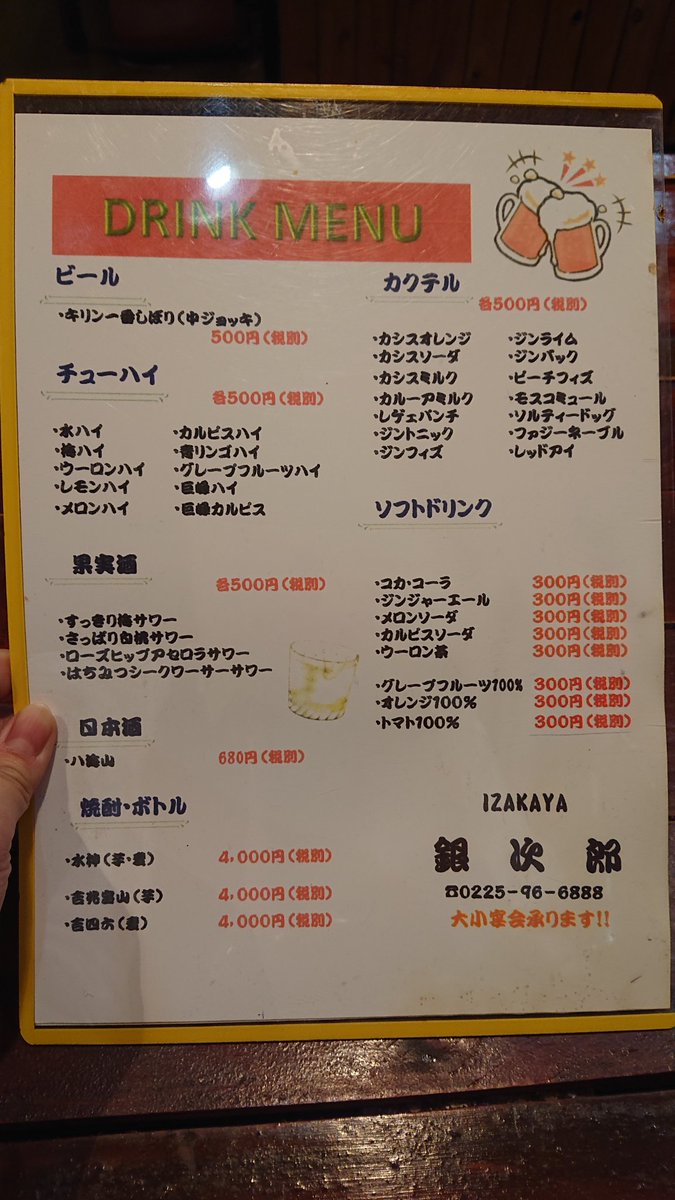 DRINK MENU
ビール
・キリン一番しぼり(中ジョッキ)
500円(税別)
チューハイ
各500円(税別)
・水ハイ
・梅ハイ
・ウーロンハイ
・レモンハイ
・メロンハイ
・カルピスハイ
・青リンゴハイ
・グレープフルーツハイ
・巨峰ハイ
・巨峰カルピス
果実酒
各500円(税別)
・すっきり梅サワー
・さっぱり白桃サワー
・ローズヒップアセロラサワー
・はちみつシークワーサーサワー
日本酒
・八海山 680円(税別)
焼酎・ボトル
・水神(芋・麦) 4,000円(税別)
・吉兆宝山(芋) 4,000円(税別)
・吉四六(麦) 4,000円(税別)
カクテル
各500円(税別)
・カシスオレンジ
・カシスソーダ
・カシスミルク
・カルーアミルク
・レゲェパンチ
・ジントニック
・ジンフィズ
・ジンライム
・ジンバック
・ピーチフィズ
・モスコミュール
・ソルティードッグ
・ファジーネーブル
・レッドアイ
ソフトドリンク
・コカ・コーラ 300円(税別)
・ジンジャーエール 300円(税別)
・メロンソーダ 300円(税別)
・カルピスソーダ 300円(税別)
・ウーロン茶 300円(税別)
・グレープフルーツ100% 300円(税別)
・オレンジ100% 300円(税別)
・トマト100% 300円(税別)
IZAKAYA
銀次郎
☎0225-96-6888
大小宴会承ります!!